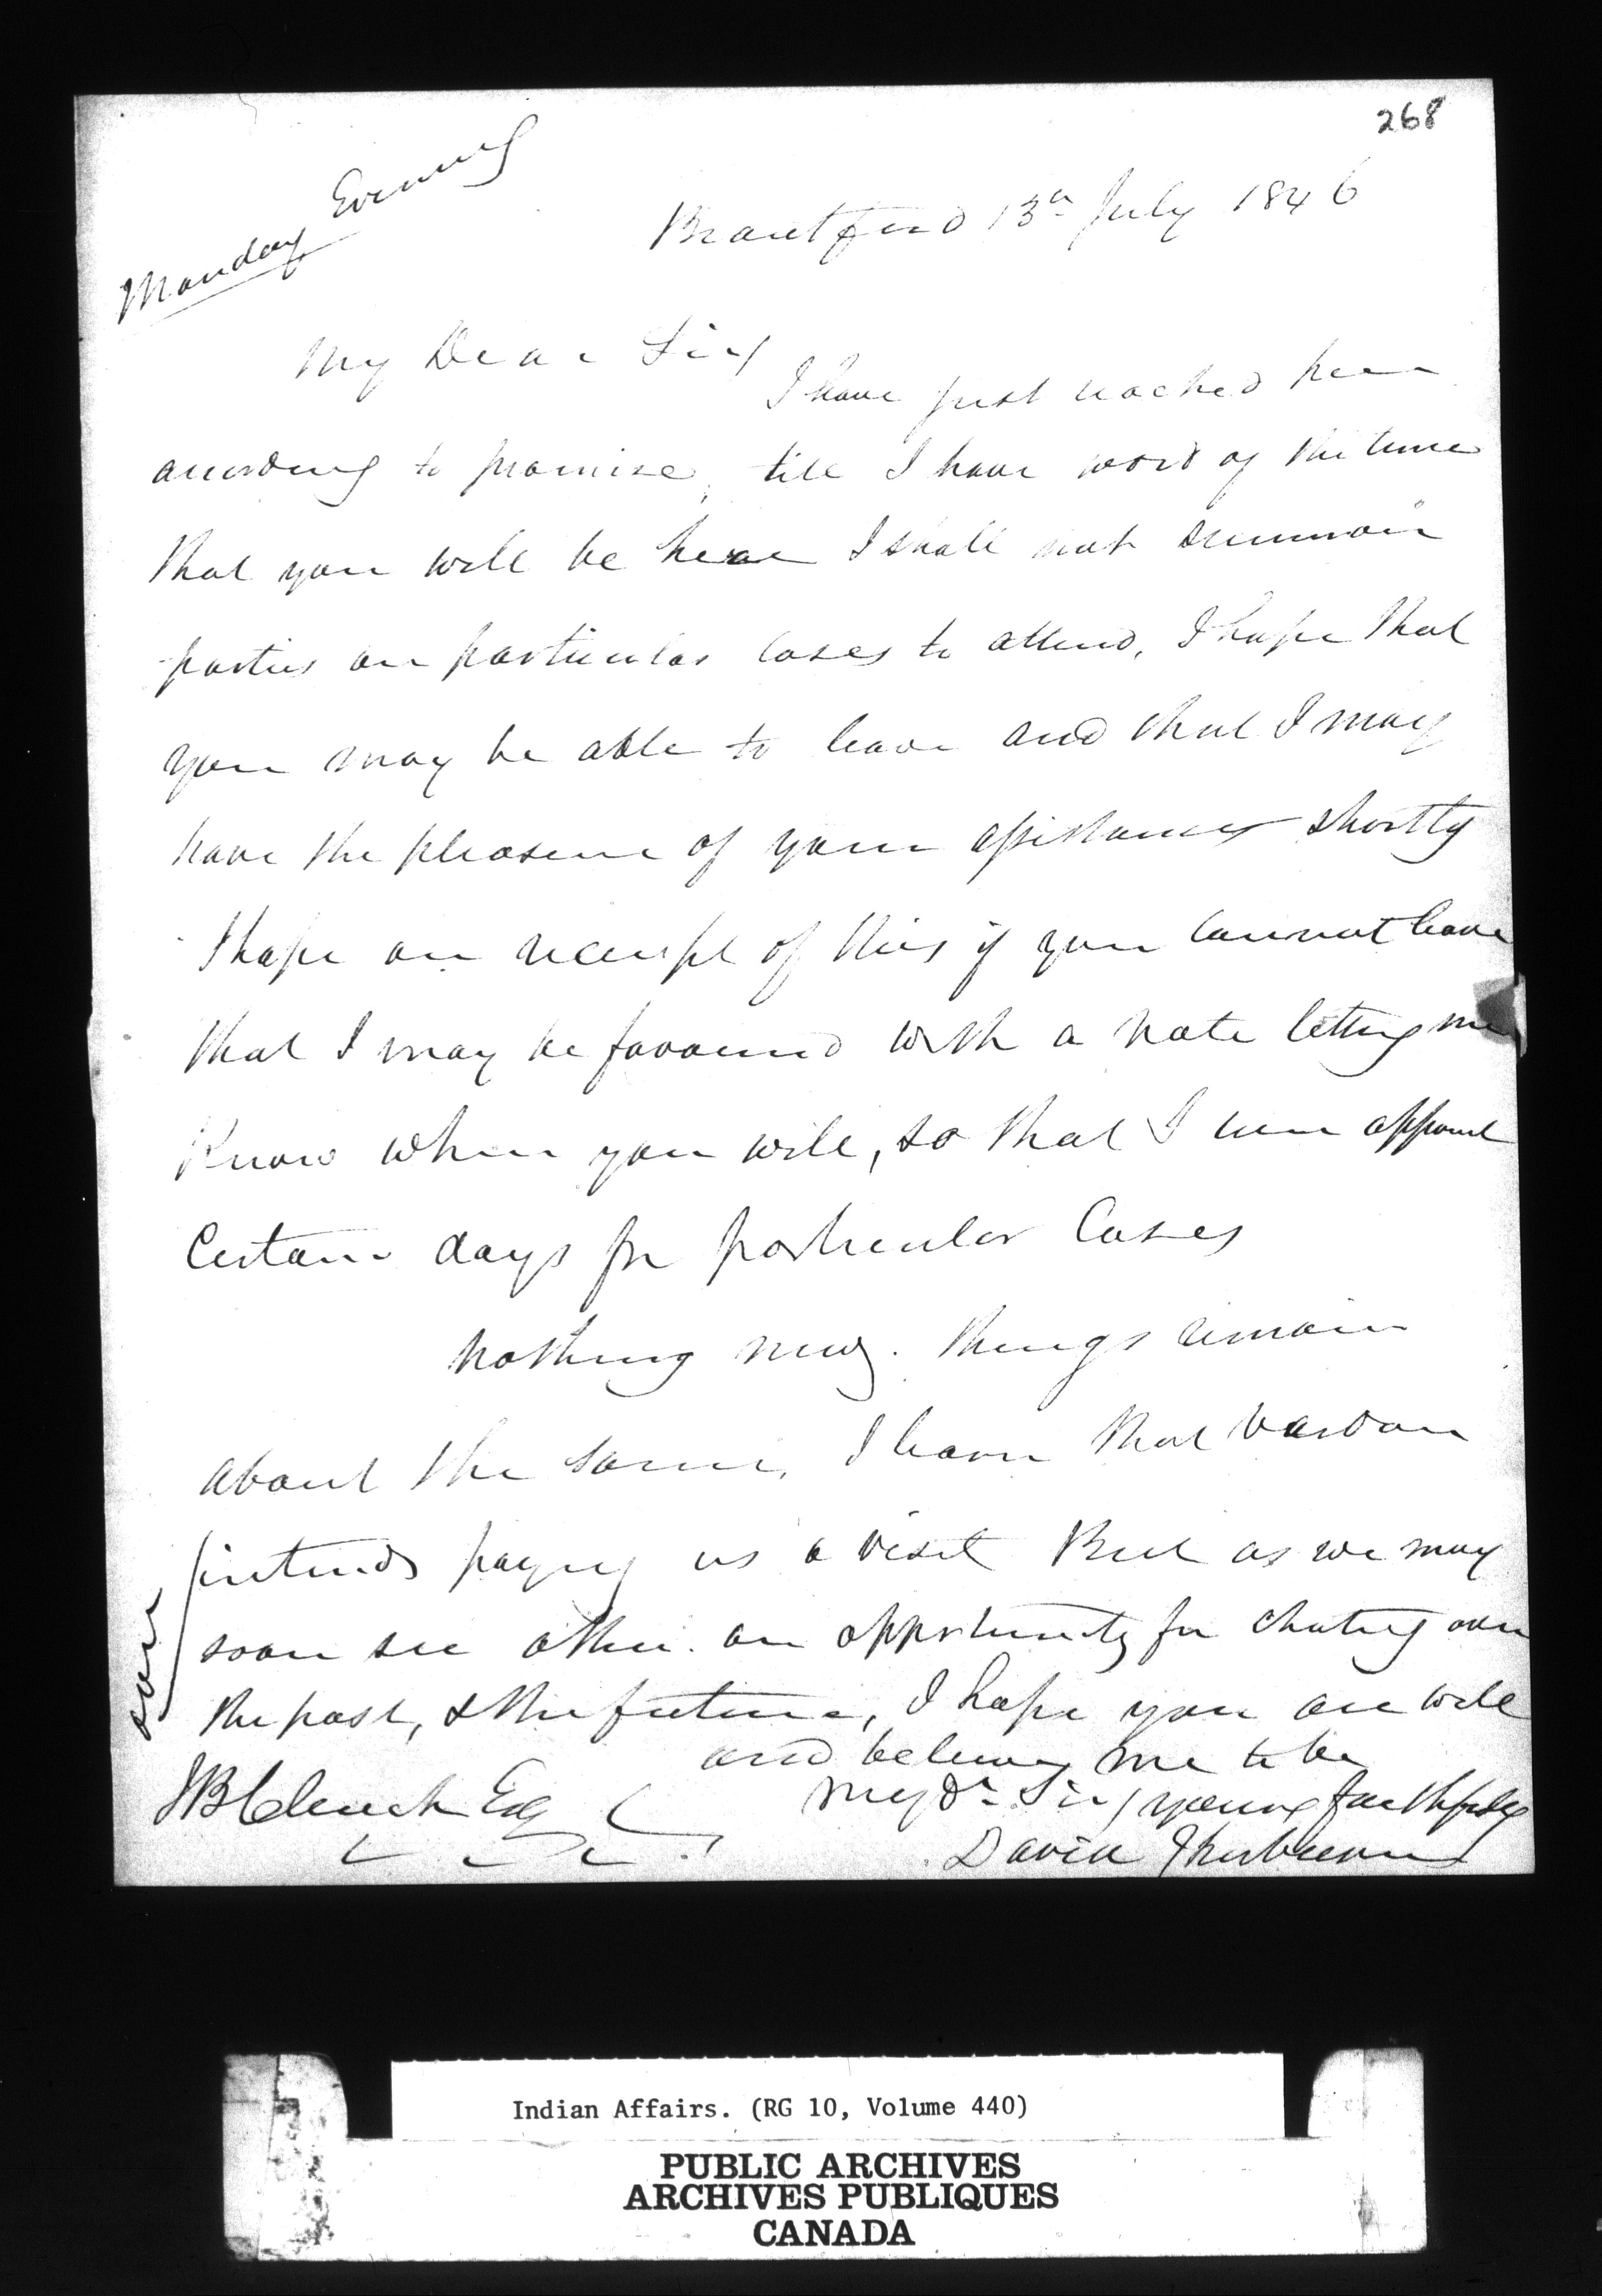 268
Monday Evening
Brantford 13th July 1846
My Dear Sir/
I have just reached here
according to promise, till I have word of the time
that you will be here I shall not summon
parties on particular cases to attend, I hope that
you may be able to leave and that I may
have the pleasure of your assistance shortly
I hope on receipt of this if you cannot leave
that I may be favoured with a note letting me
Know when you will, so that I can appoint
Certain days for particular Cases
nothing new. things remain
about the same, I learn that Vardon
intends paying us a visit But as we may
soon see other. an opportunity for chating over
the past, & the future, I hope you are well
and believe me to be
My Dr Sir/ yours faithfully
David Thorburn
JB Clench Esq
over
Indian Affairs. (RG 10, Volume 440)
PUBLIC ARCHIVES
ARCHIVES PUBLIQUES
CANADA